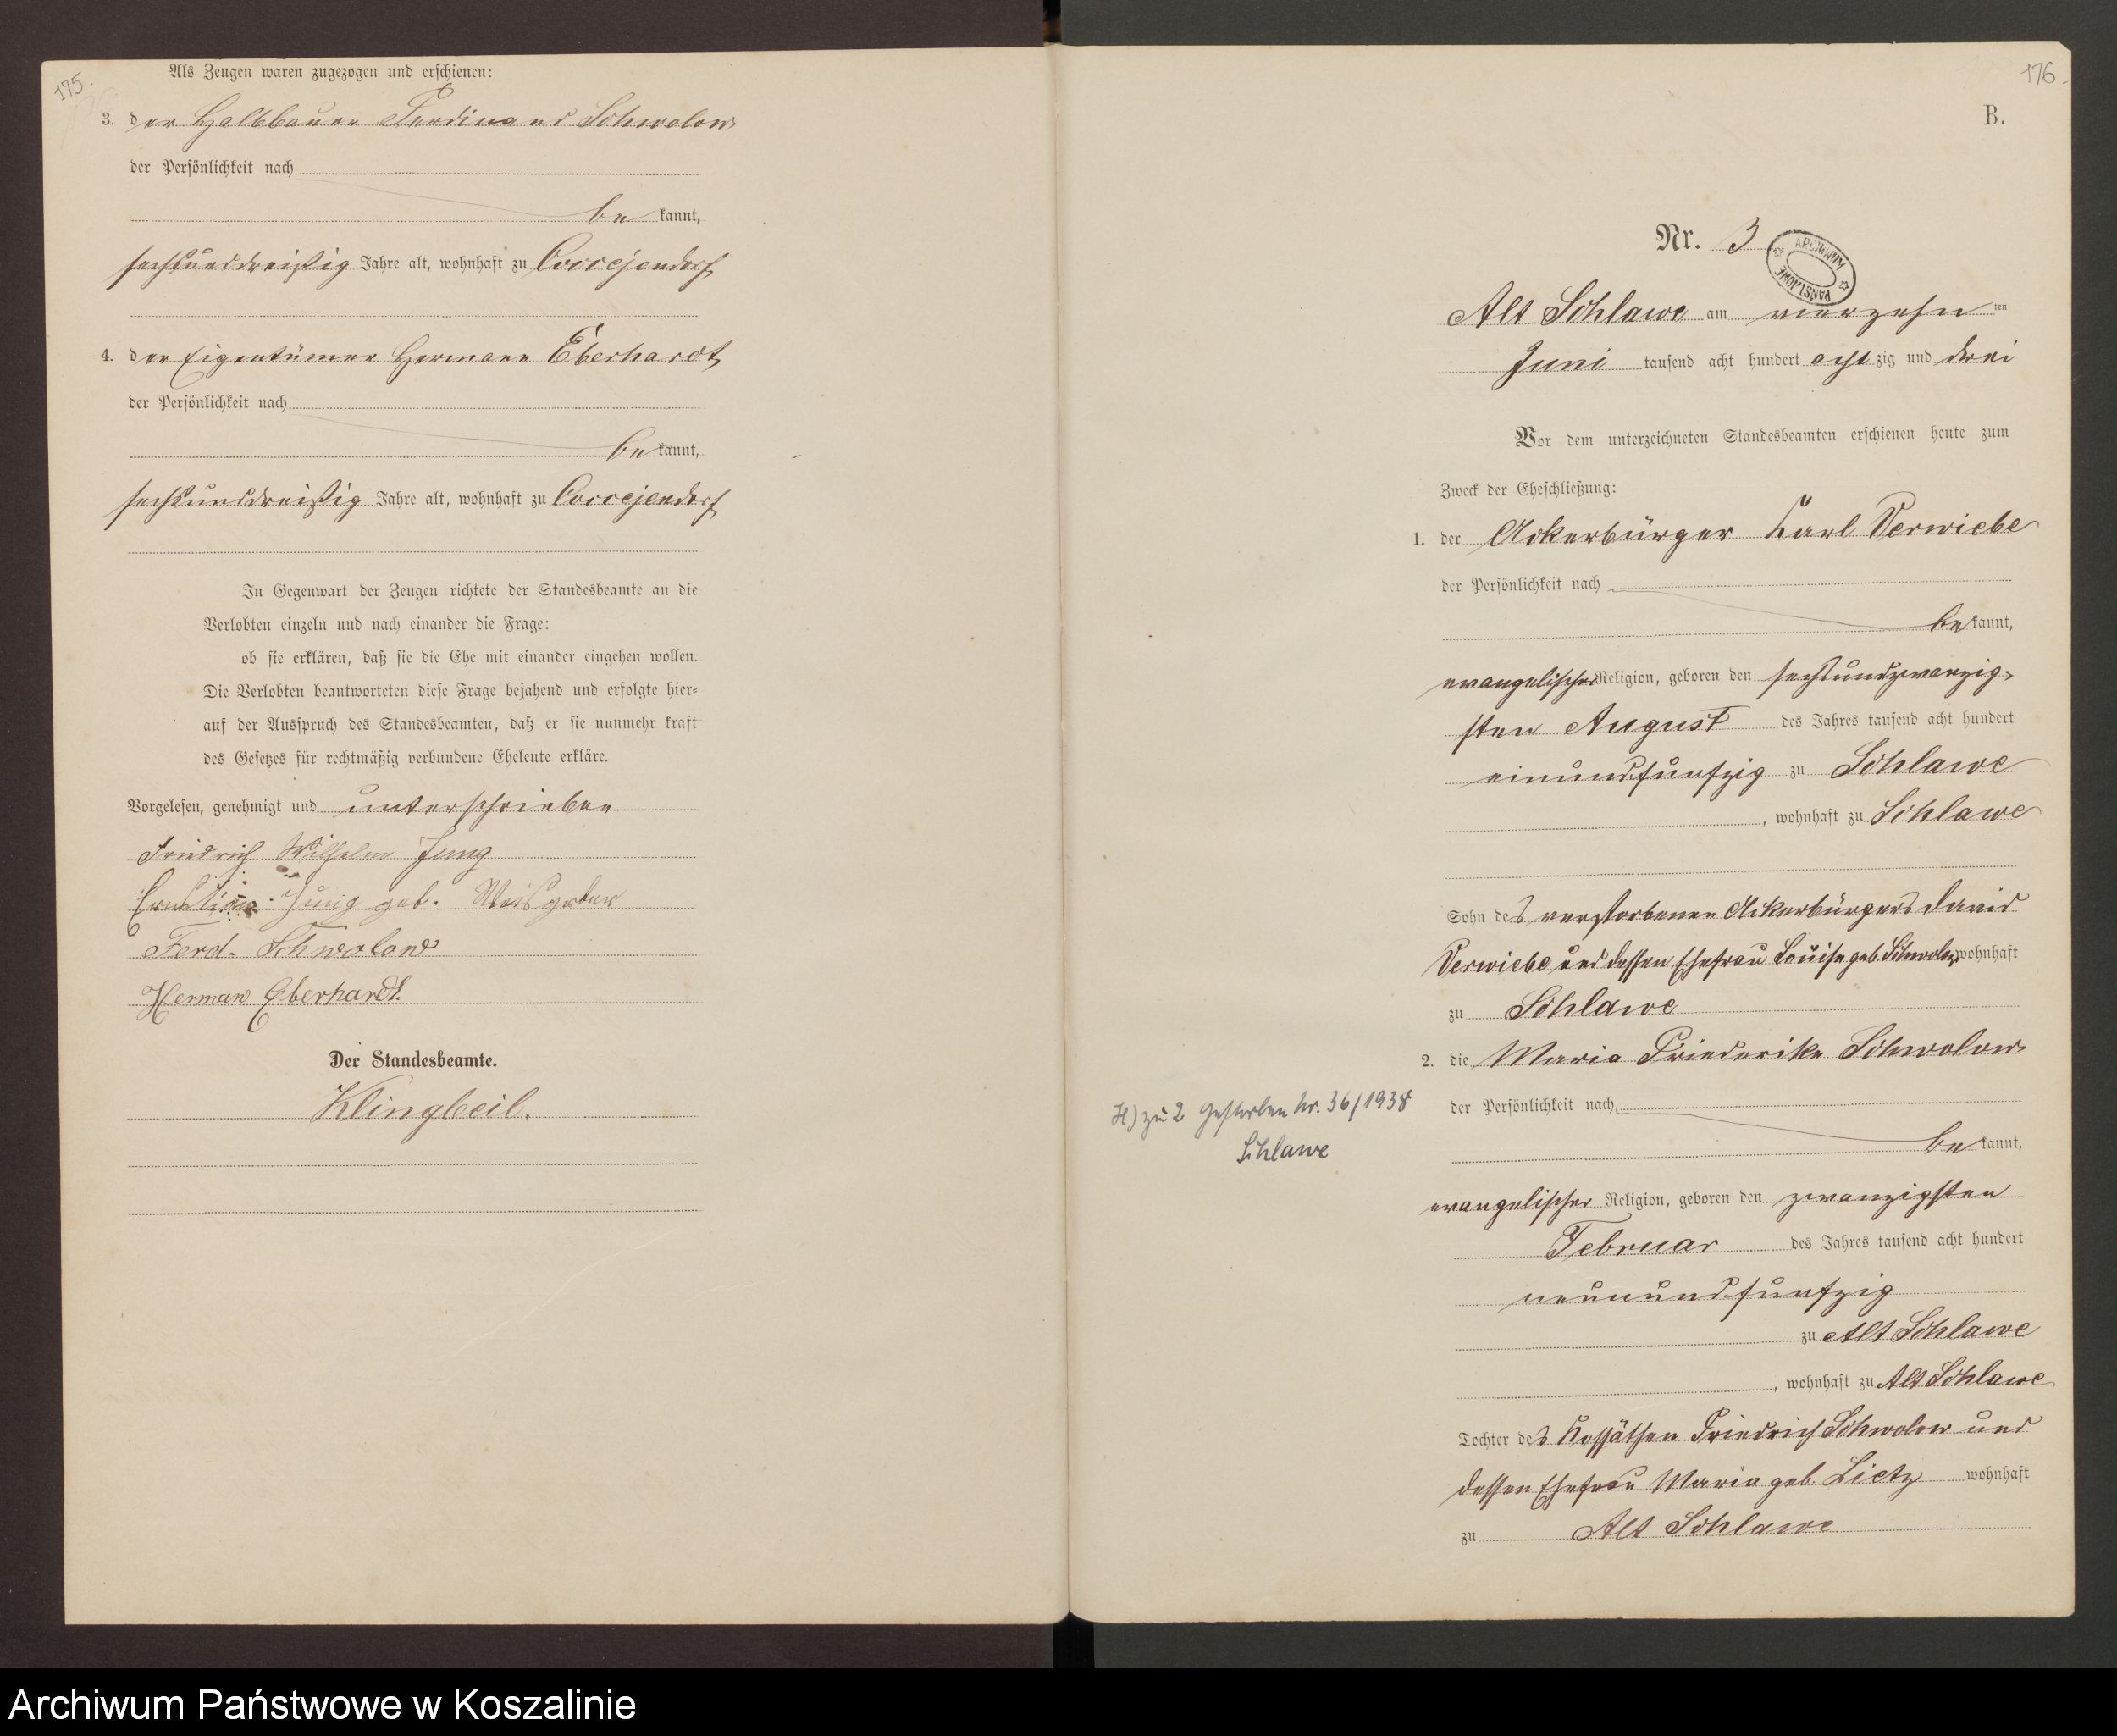 175.
Als Zeugen waren zugezogen und erschienen:
3. der Halbbauer Ferdinand Schwolow
der Persönlichkeit nach
be kannt,
sechsunddreißig Jahre alt, wohnhaft zu Coccejendorf
4. der Eigentümer Hermann Eberhardt
der Persönlichkeit nach
be kannt,
sechsunddreißig Jahre alt, wohnhaft zu Coccejendorf
In Gegenwart der Zeugen richtete der Standesbeamte an die
Verlobten einzeln und nach einander die Frage:
ob sie erklären, daß sie die Ehe mit einander eingehen wollen.
Die Verlobten beantworteten diese Frage bejahend und erfolgte hier-
auf der Ausspruch des Standesbeamten, daß er sie nunmehr kraft
des Gesetzes für rechtmäßig verbundene Eheleute erkläre.
Vorgelesen, genehmigt und unterschrieben
Friedrich Wilhelm Jung
Ernstine Jung geb. Weisgeber
Ferd. Schwolow
Herman Eberhardt.
Der Standesbeamte.
Klingbeil.
176.
B.
Nr. 3
ARCHIWUM PAŃSTWOWE
Alt Schlawe am vierzehn ten
Juni tausend acht hundert acht zig und drei
Vor dem unterzeichneten Standesbeamten erschienen heute zum
Zweck der Eheschließung:
1. der Ackerbürger Karl Verwiebe
der Persönlichkeit nach
be kannt,
evangelischer Religion, geboren den sechsundzwanzig-
sten August des Jahres tausend acht hundert
einundfünfzig zu Schlawe
, wohnhaft zu Schlawe
Sohn des verstorbenen Ackerbürgers David
Verwiebe und dessen Ehefrau Louise geb. Schwolow wohnhaft
zu Schlawe
2. die Maria Friederike Schwolow
H) zu 2 gestorben Nr. 36/1938
Schlawe
der Persönlichkeit nach
be kannt,
evangelischer Religion, geboren den zwanzigsten
Februar des Jahres tausend acht hundert
neunundfünfzig
zu Alt Schlawe
, wohnhaft zu Alt Schlawe
Tochter des Kossäthen Friedrich Schwolow und
dessen Ehefrau Maria geb. Lietz wohnhaft
zu Alt Schlawe
Archiwum Państwowe w Koszalinie